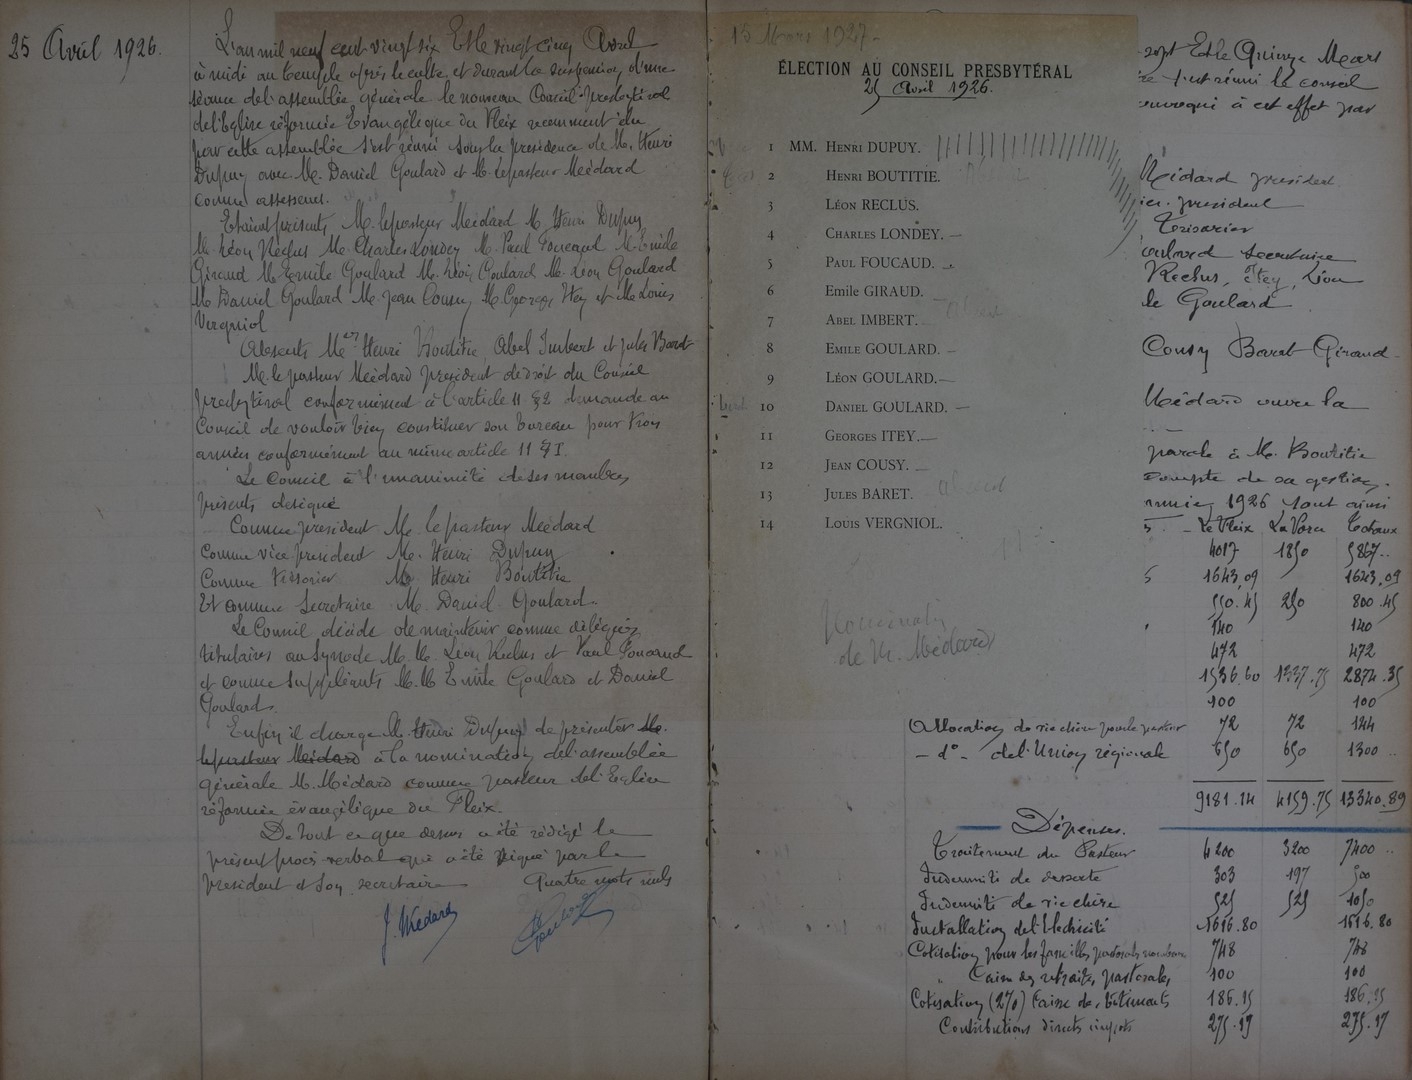 25 Avril 1926.
L'an mil neuf cent vingt six Et le vingt cinq Avril
à midi au temple après le culte et durant la suspension d'une
séance de l'assemblée générale le nouveau Conseil presbytéral
de l'Eglise réformée Evangélique du Fleix récemment élu
par cette assemblée s'est réuni sous la présidence de M. Henri
Dupuy avec M. Daniel Goulard et M. le pasteur Médard
comme assesseurs.
Etaient présents M. le pasteur Médard M. Henri Dupuy
M. Léon Reclus M. Charles Londey M. Paul Foucaud M. Emile
Giraud M. Emile Goulard M. Léon Goulard
M. Daniel Goulard M. Jean Cousy M. Georges Itey et M. Louis
Vergniol
Absents MM. Henri Boutitie, Abel Imbert et Jules Baret
M. le pasteur Médard président de droit du Conseil
presbytéral conformément à l'article 11 § 2 demande au
Conseil de vouloir bien constituer son bureau pour trois
années conformément au même article 11 § I.
Le Conseil à l'unanimité de ses membres
présents désigne
Comme président M. le pasteur Médard
Comme vice président M. Henri Dupuy
Comme Trésorier M. Henri Boutitie
Et comme Secrétaire M. Daniel Goulard.
Le Conseil décide de maintenir comme délégués
titulaires au Synode M. M. Léon Reclus et Paul Foucaud
et comme suppléants M. M. Emile Goulard et Daniel
Goulard.
Enfin il charge M. Henri Dupuy de présenter M.
le pasteur Médard à la nomination de l'assemblée
générale M. Médard comme pasteur de l'Eglise
réformée évangélique du Fleix.
De tout ce que dessus a été rédigé le
présent procès verbal qui a été signé par le
Président et son secrétaire Quatre mots nuls
J. Médard
15 Mars 1927.
ÉLECTION AU CONSEIL PRESBYTÉRAL
25 Avril 1926.
1 MM. HENRI DUPUY.
2 HENRI BOUTITIE. Absent
3 LÉON RECLUS.
4 CHARLES LONDEY. —
5 PAUL FOUCAUD. —
6 EMILE GIRAUD. —
7 ABEL IMBERT. Absent
8 EMILE GOULARD. —
9 LÉON GOULARD. —
10 DANIEL GOULARD. —
11 GEORGES ITEY. —
12 JEAN COUSY. —
13 JULES BARET. absent
14 LOUIS VERGNIOL.
Nomination
de M. Médard
sept Et le Quinze Mars
s'est réuni le conseil
convoqué à cet effet par
Médard président
président
Trésorier
Goulard secrétaire
Reclus, Itey, Léon
le Goulard
Cousy Baret Giraud
Médard ouvre la
parole à M. Boutitie
compte de sa gestion.
1926 sont ainsi
Le Fleix La Force Totaux
4017 1850 5867..
1643,09 1643,09
550.45 250 800.45
140 140
472 472
1536.60 1337.75 2874.35
100 100
Allocation de vie chère pour le pasteur 72 72 144
— d° — de l'Union régionale 650 650 1300..
9181.14 4159.75 13340.89
Dépenses.
Traitement du Pasteur 4200 3200 7400..
Indemnité de desserte 303 197 500
Indemnité de vie chère 525 525 1050
Installation de l'électricité 1616.80 1616.80
Cotisation pour les familles pastorales nombreuses 748 748
" Caisse des retraites pastorales, 100 100
Cotisation (2%) Caisse des bâtiments 186.15 186.15
Contributions directes impôts 275.19 275.19